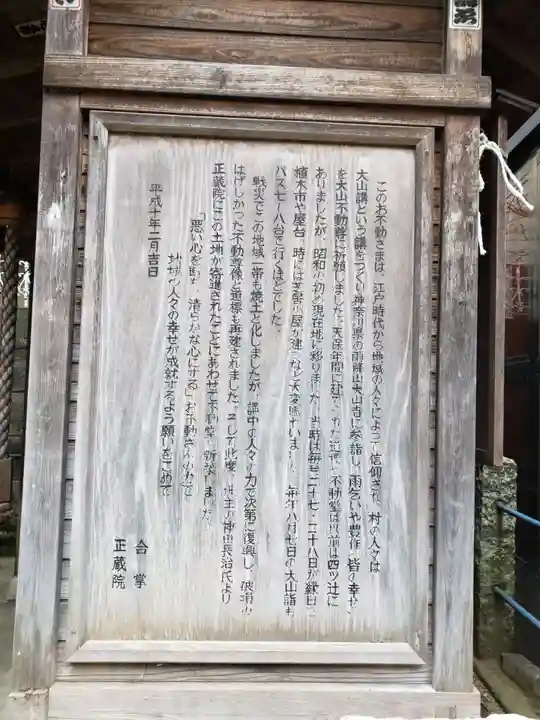 このお不動さまは、江戸時代から地域の人々によって信仰され、村の人々は
大山講という講をつくり神奈川県の雨降山大山寺に参詣し、雨乞いや豊作、皆の幸せ
を大山不動尊に祈願しました。天保年間に建てられた道標、不動堂は以前は四ツ辻に
ありましたが、昭和の初め現在地に移りました。当時は毎月二十七・二十八日が縁日で
植木市や屋台、時には芝居小屋が建つなど大変賑わいました。毎年八月七日の大山詣も
バス七・八台で行くほどでした。
戦災でこの地域一帯も焼土と化しましたが、講中の人々の力で次第に復興し、破損の
はげしかった不動尊像と道標も再建されました。そして此度、地主の神田長治氏より
正蔵院にこの土地が寄進されたことにあわせて不動堂を新築しました。
「悪い心を断ち、清らかな心にする」お不動さんの力で
地域の人々の幸せが成就するよう願いをこめて
平成十年二月吉日
合掌
正蔵院